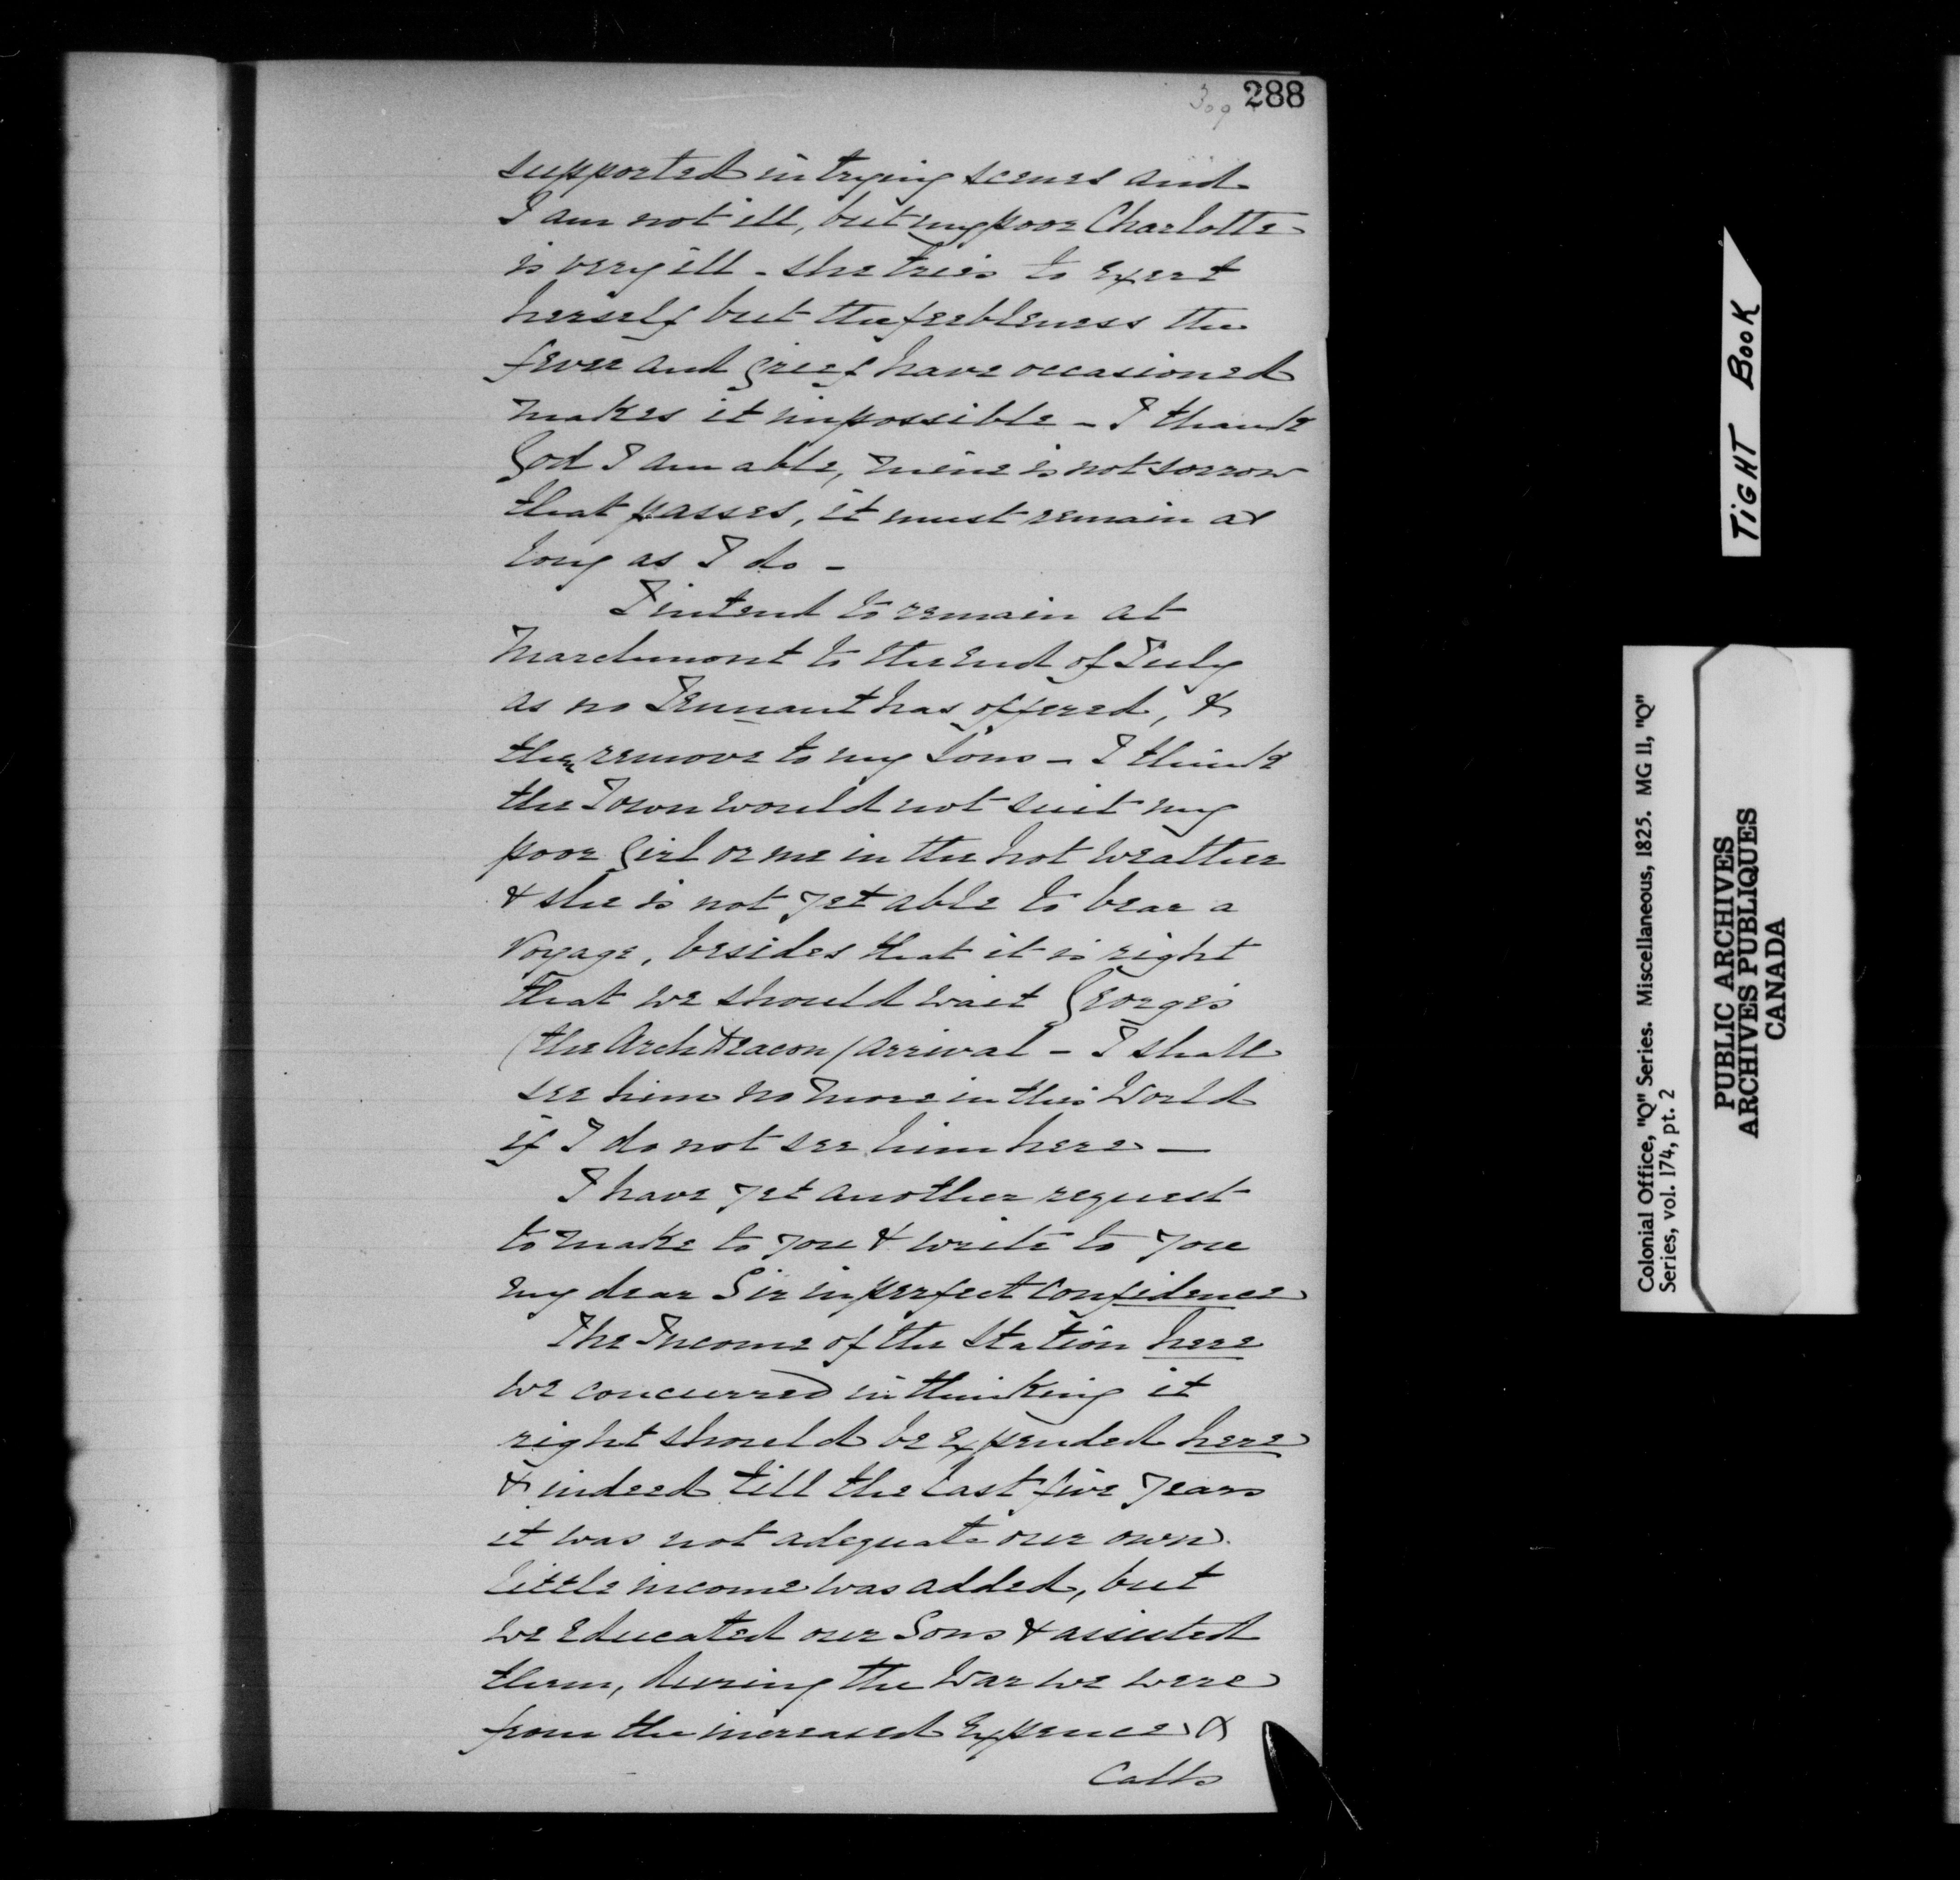 309 288
supported in trying scenes and
I am not ill, but my poor Charlotte
is very ill - she tries to exert
herself but the feebleness the
fever and grief have occasioned
makes it impossible - I thank
God I am able, mine is not sorrow
that passes, it must remain as
long as I do -
I intend to remain at
Marchmont to the end of July
as no Tennant has offered, &
then remove to my Sons - I think
the Town would not suit my
poor Girl or me in the hot weather
& she is not yet able to bear a
Voyage, besides that it is right
that we should wait George's
(the Arch Deacon) arrival - I shall
see him no more in this World
if I do not see him here -
I have yet another request
to make to you & write to you
my dear Sir in perfect confidence
The Income of the Station here
we concurred in thinking it
right should be expended here
& indeed till the last five years
it was not adequate our own
little income was added, but
we educated our Sons & assisted
them, during the War we were
from the increased Expences &
Calls
TIGHT BOOK
Colonial Office, "Q" Series. Miscellaneous, 1825. MG 11, "Q"
Series, vol. 174, pt. 2
PUBLIC ARCHIVES
ARCHIVES PUBLIQUES
CANADA